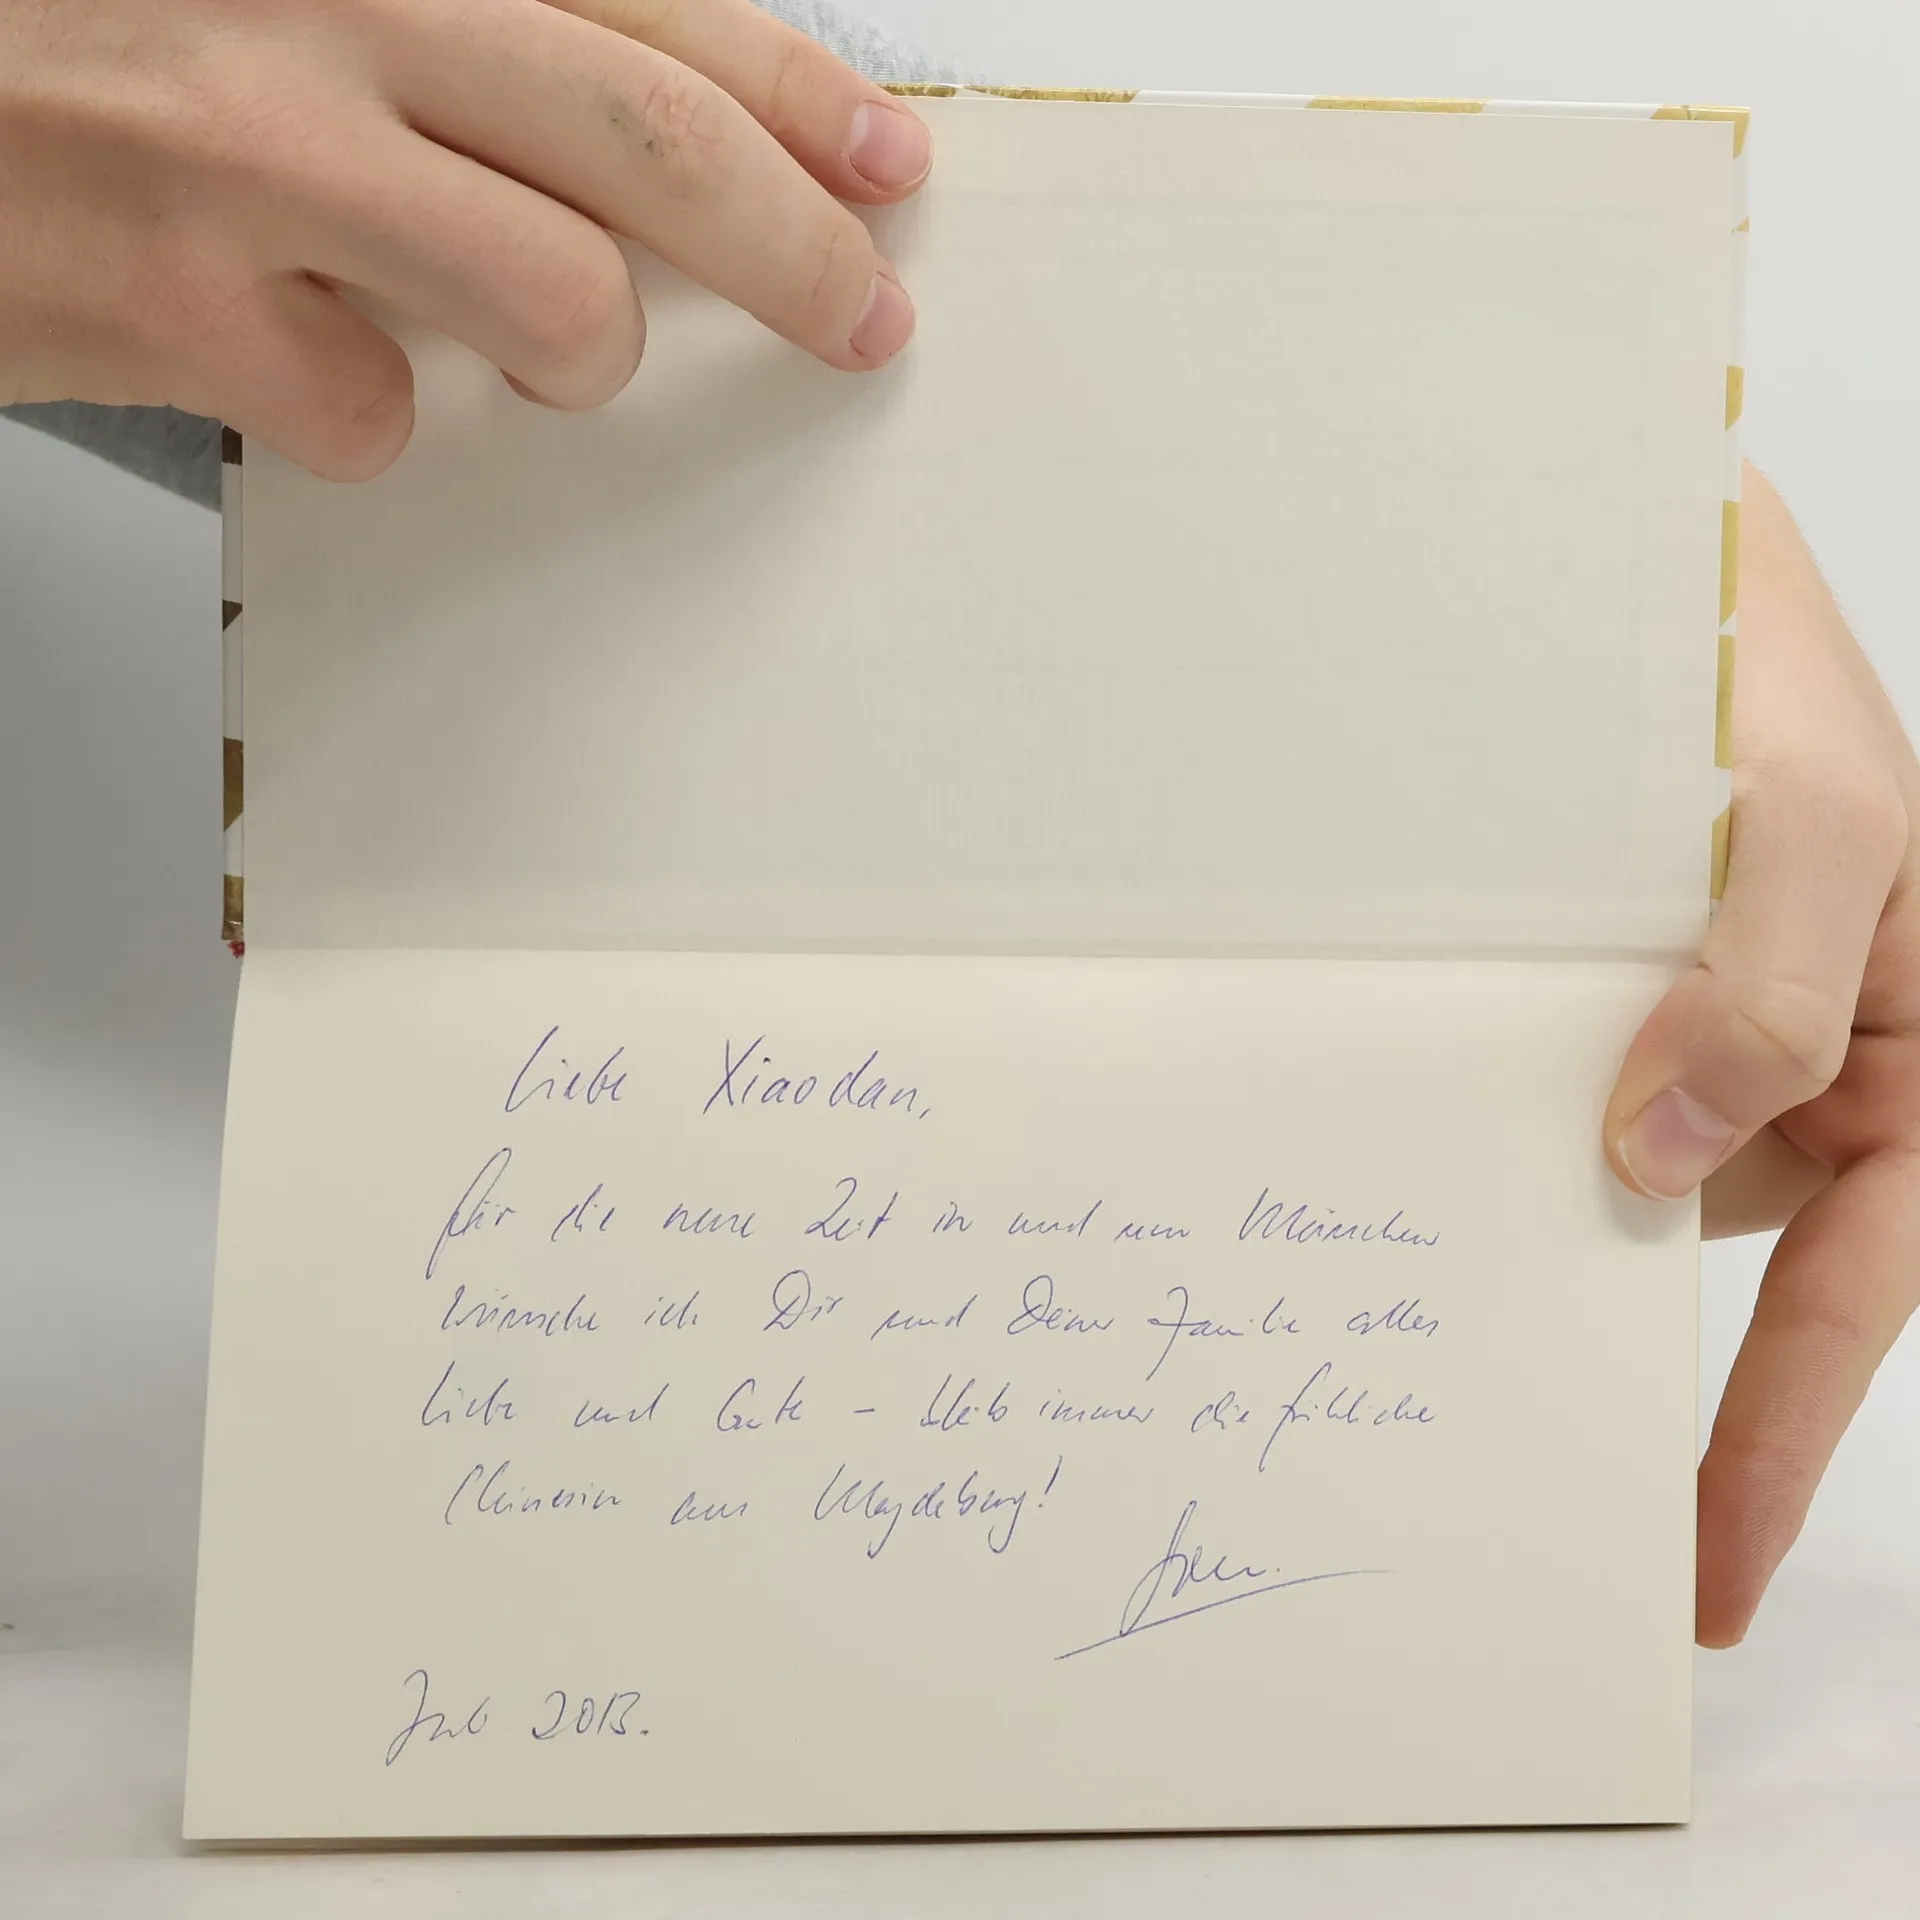 Liebe Xiaodan,
für die neue Zeit in und um München
wünsche ich Dir und Deiner Familie alles
Liebe und Gute – bleib immer die fröhliche
Chinesin aus Magdeburg!
Juli 2013.